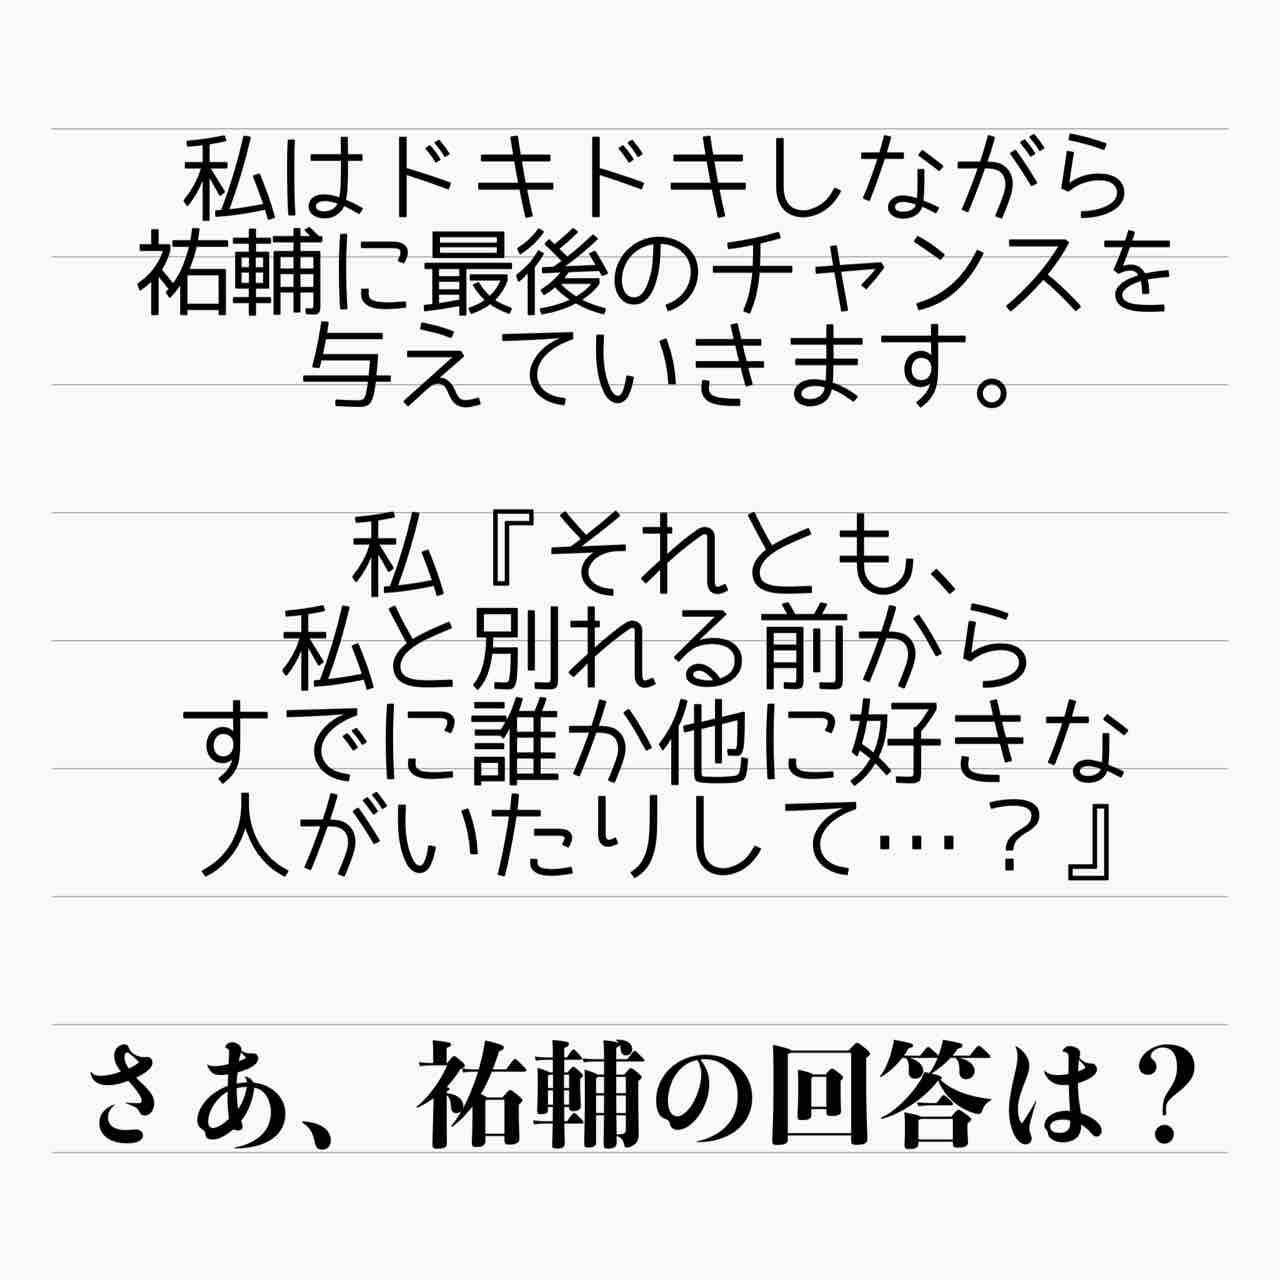 私はドキドキしながら
祐輔に最後のチャンスを
与えていきます。
私『それとも、
私と別れる前から
すでに誰か他に好きな
人がいたりして…？』
さあ、祐輔の回答は？